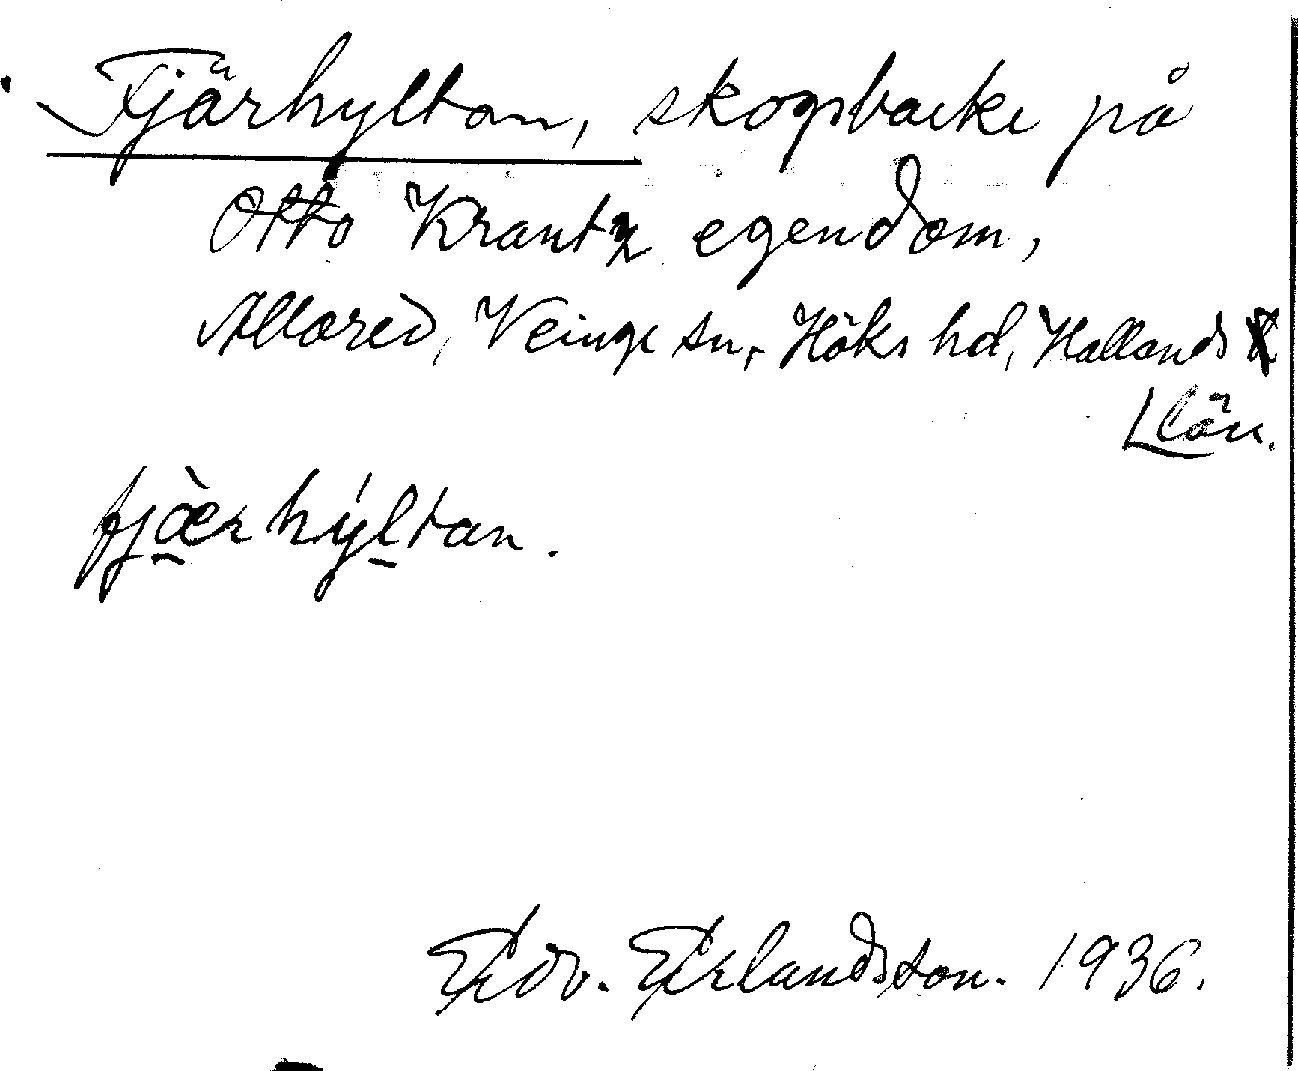 Fjärhyltan, skogsbacke på
Otto Krantz egendom,
Allared, Veinge sn, Höks hd, Hallands
län.
fjæ̀rhýltan.
Edv. Erlandsson. 1936.